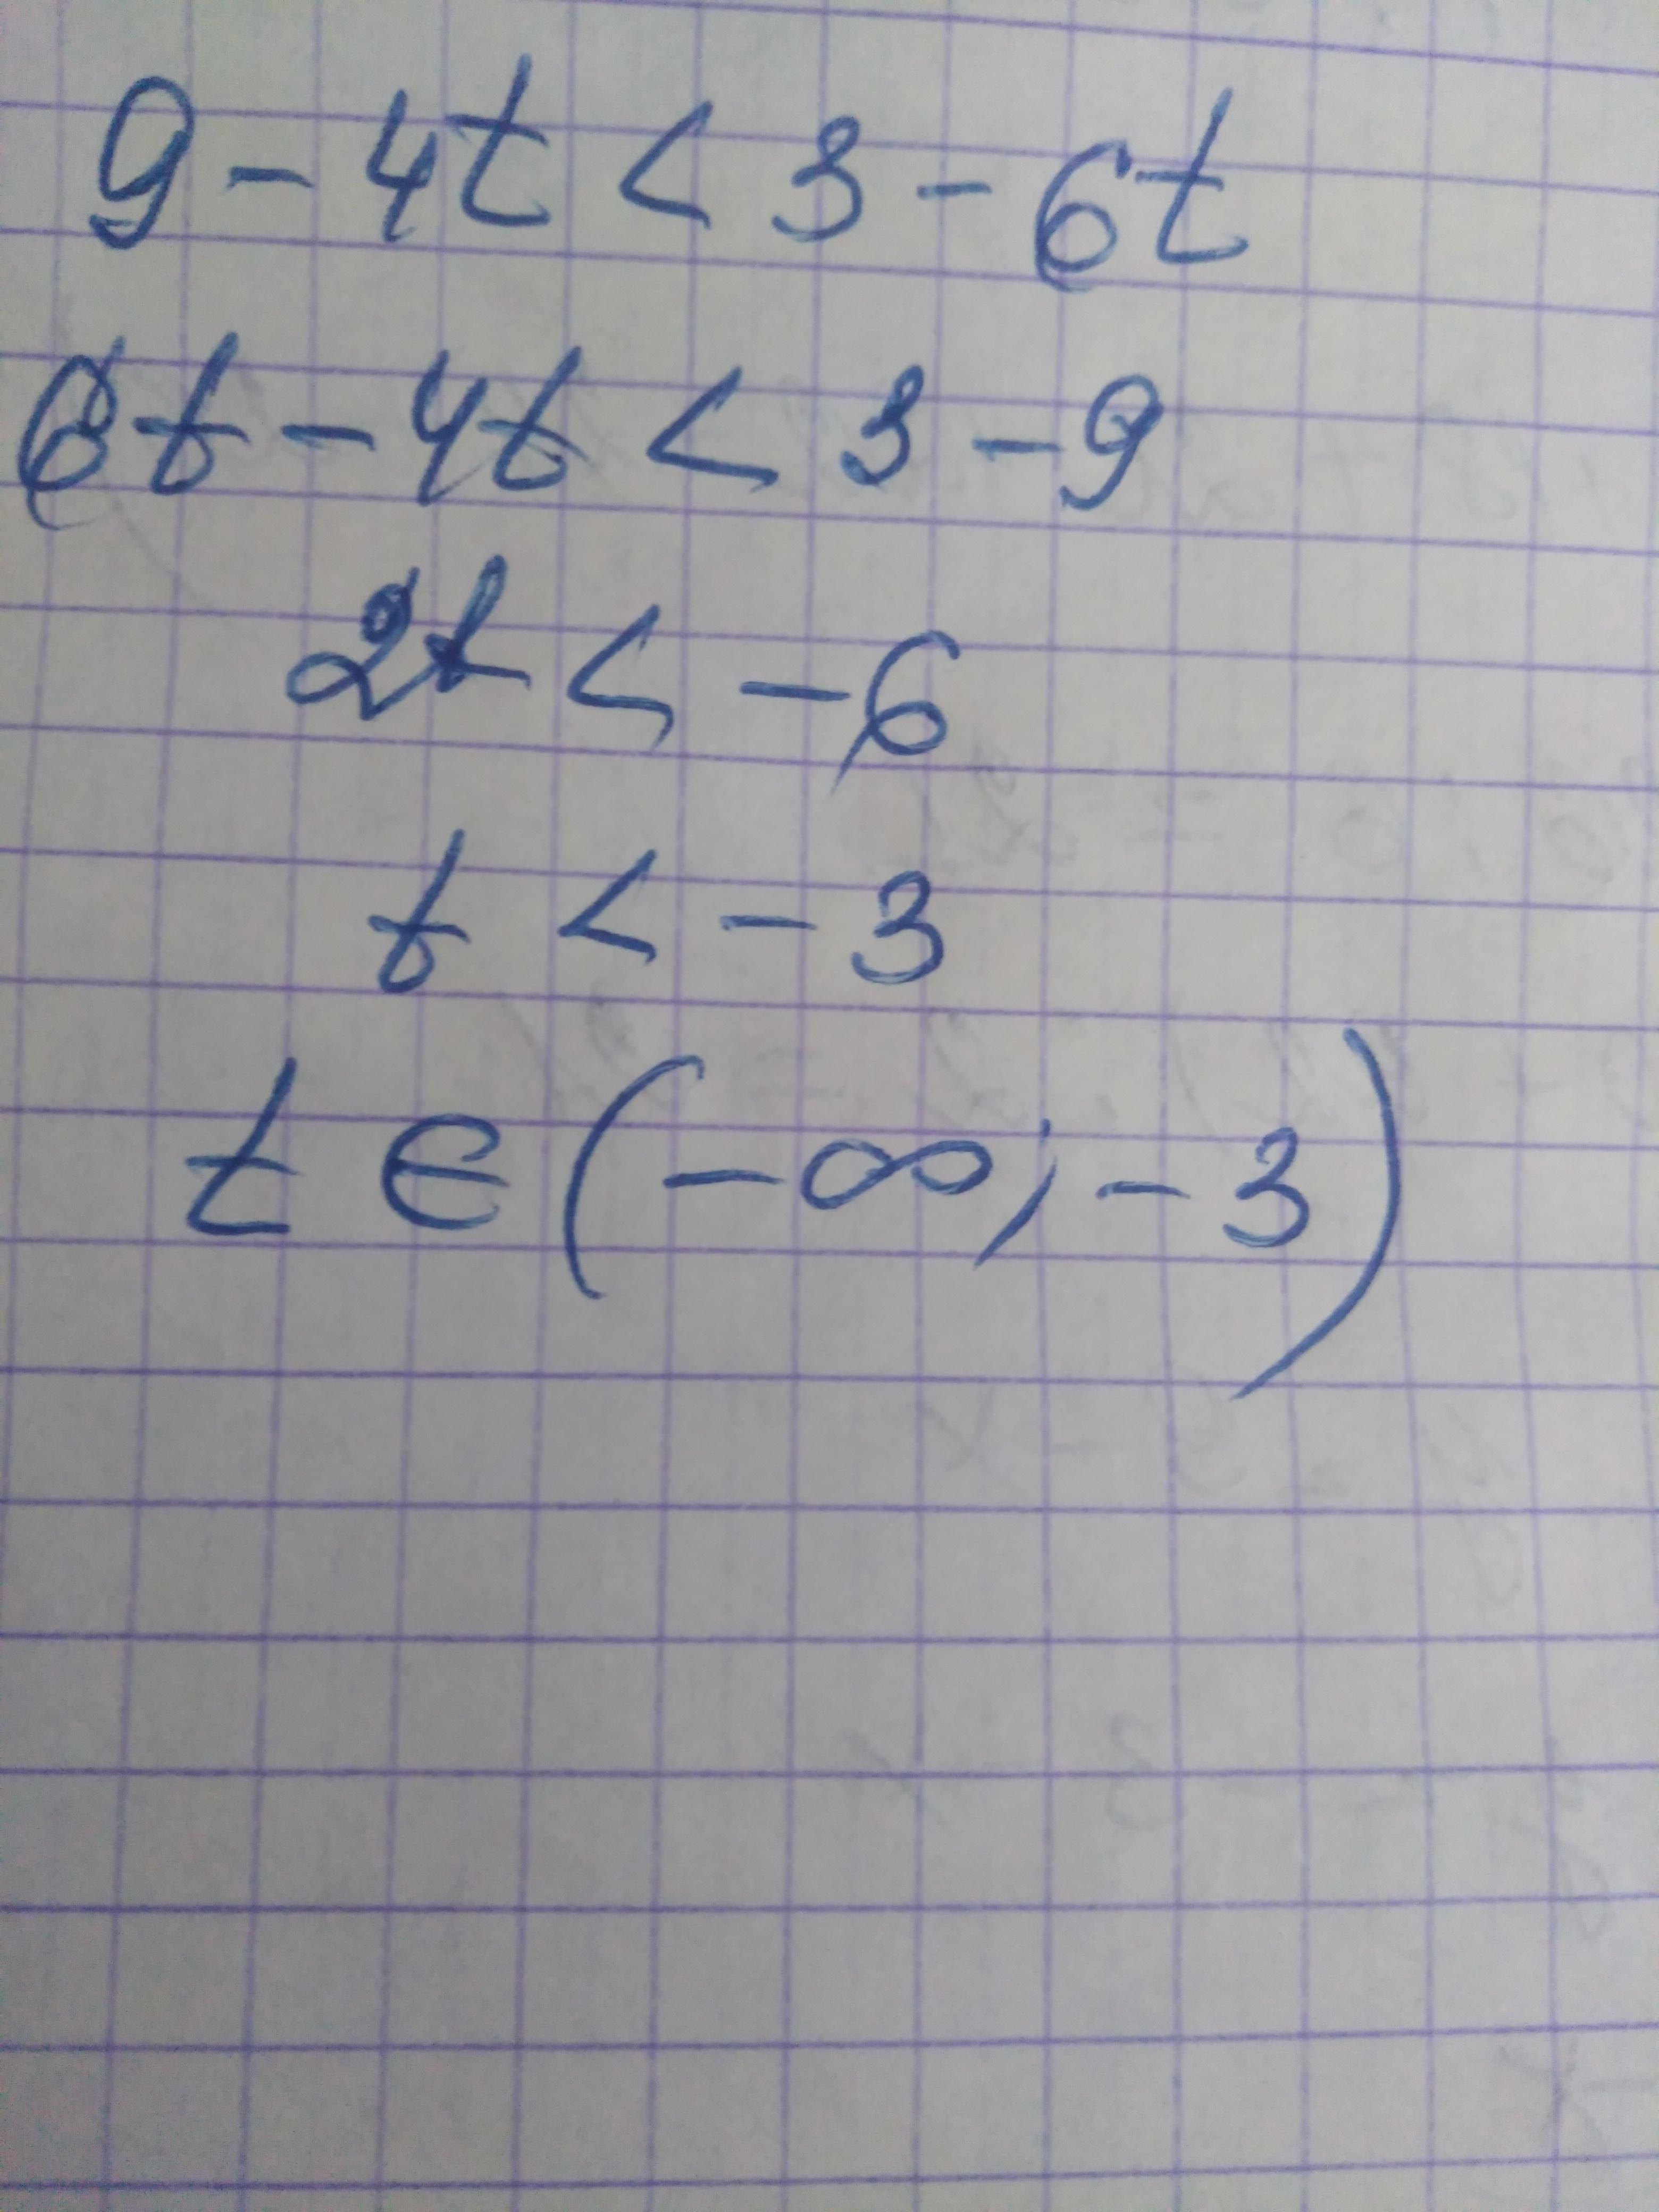 9 - 4t < 3 - 6t
6t - 4t < 3 - 9
2t < - 6
t < - 3
t ∈ (- ∞; - 3)